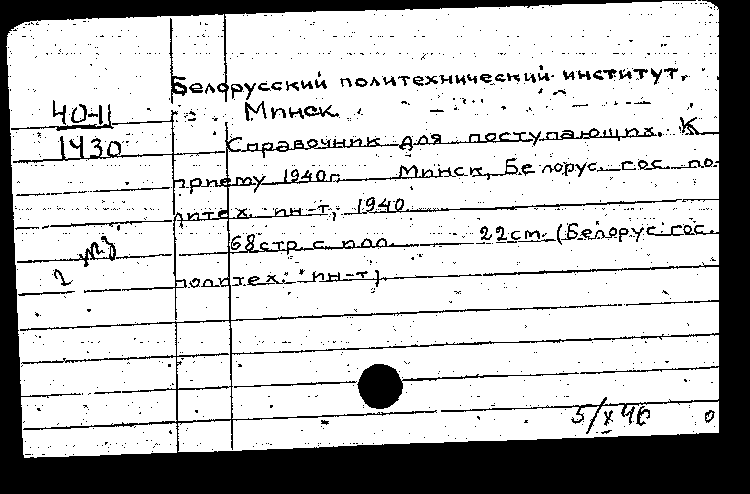 Белорусский политехнический институт,
40-11
Минск.
1430
Справочник для поступающих. К
приему 1940г. Минск, Белорус. гос. по-
литех. ин-т, 1940.
68стр. с илл. 22см. (Белорус. гос.
2 экз.
политех. ин-т).
5/X 46